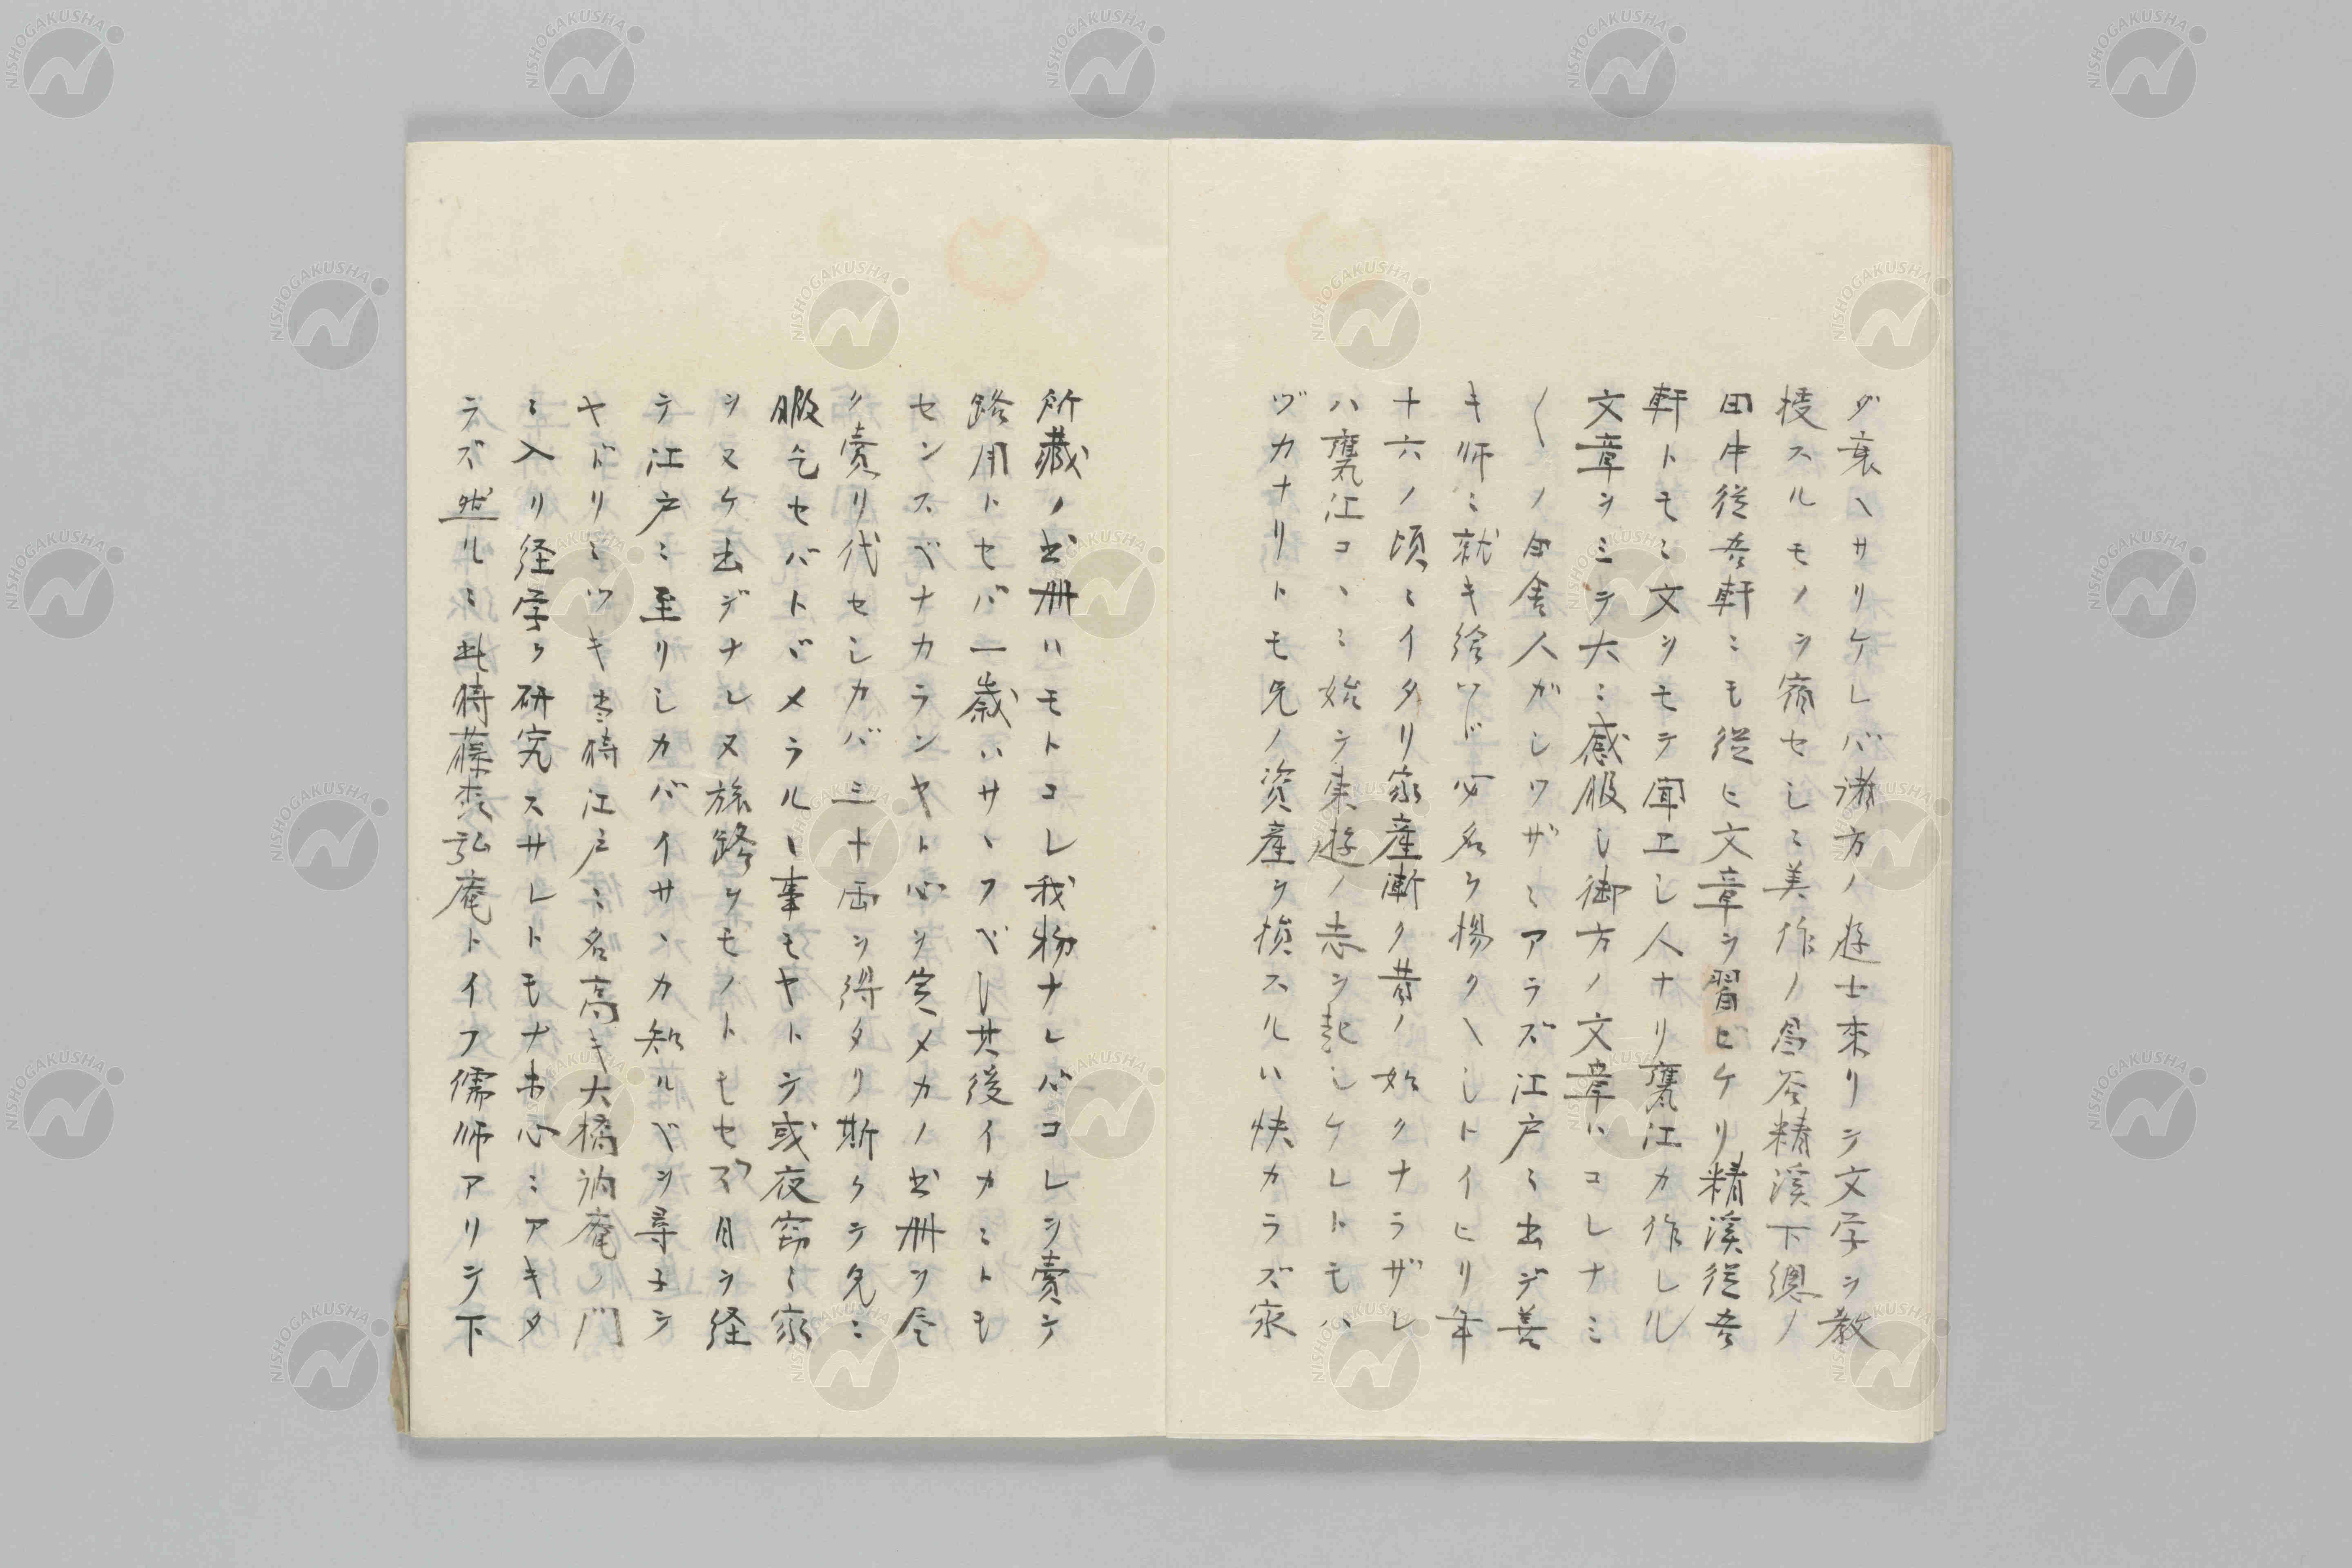 ダ衰ヘサリケレバ諸方ノ遊士来リテ文学ヲ教
授スルモノヲ宿セシニ美作ノ昌谷精溪下總ノ
田中従吾軒ニモ従ヒ文章ヲ習ヒケリ精溪従吾
軒トモニ文ヲモテ聞エシ人ナリ甕江カ作レル
文章ヲミテ大ニ感服し御方ノ文章ハコレナミ
〱ノ田舎人ガしワザニアラズ江戸ニ出デ善
キ師ニ就キ給ツド必名ヲ揚クヘしトイヒリ年
十六ノ頃ニイタリ家産漸ク昔ノ始クナラザレ
ハ甕江コヽニ始テ東遊ノ志ヲ起しケレトモハ
ヅカナリトモ兄ノ資産ヲ損スルハ快カラズ家
所蔵ノ書冊ハモトコレ我物ナレバコレヲ賣テ
路用トセバ一歳ハサヽフベし其後イカニトモ
センスベナカランヤト心ヲ定メカノ書冊ヲ盡
ク賣リ代セしカバ三十両ヲ得タリ斯クテ兄ニ
暇乞セバトドメラルヽ事モヤトテ或夜窃ニ家
ヲヌケ出デナレヌ旅路ヲモノトモセズ月ヲ経
テ江戸ニ至リしカバイサヽカ知ルベヲ尋子テ
ヤドリニツキ当時江戸ニ名高キ大橋訥庵ノ門
ニ入リ経学ヲ研究スサレトモナホ心ニアキタ
ラズ然ルニ此時藤森弘庵トイフ儒師アリテ下
NISHOGAKUSHA